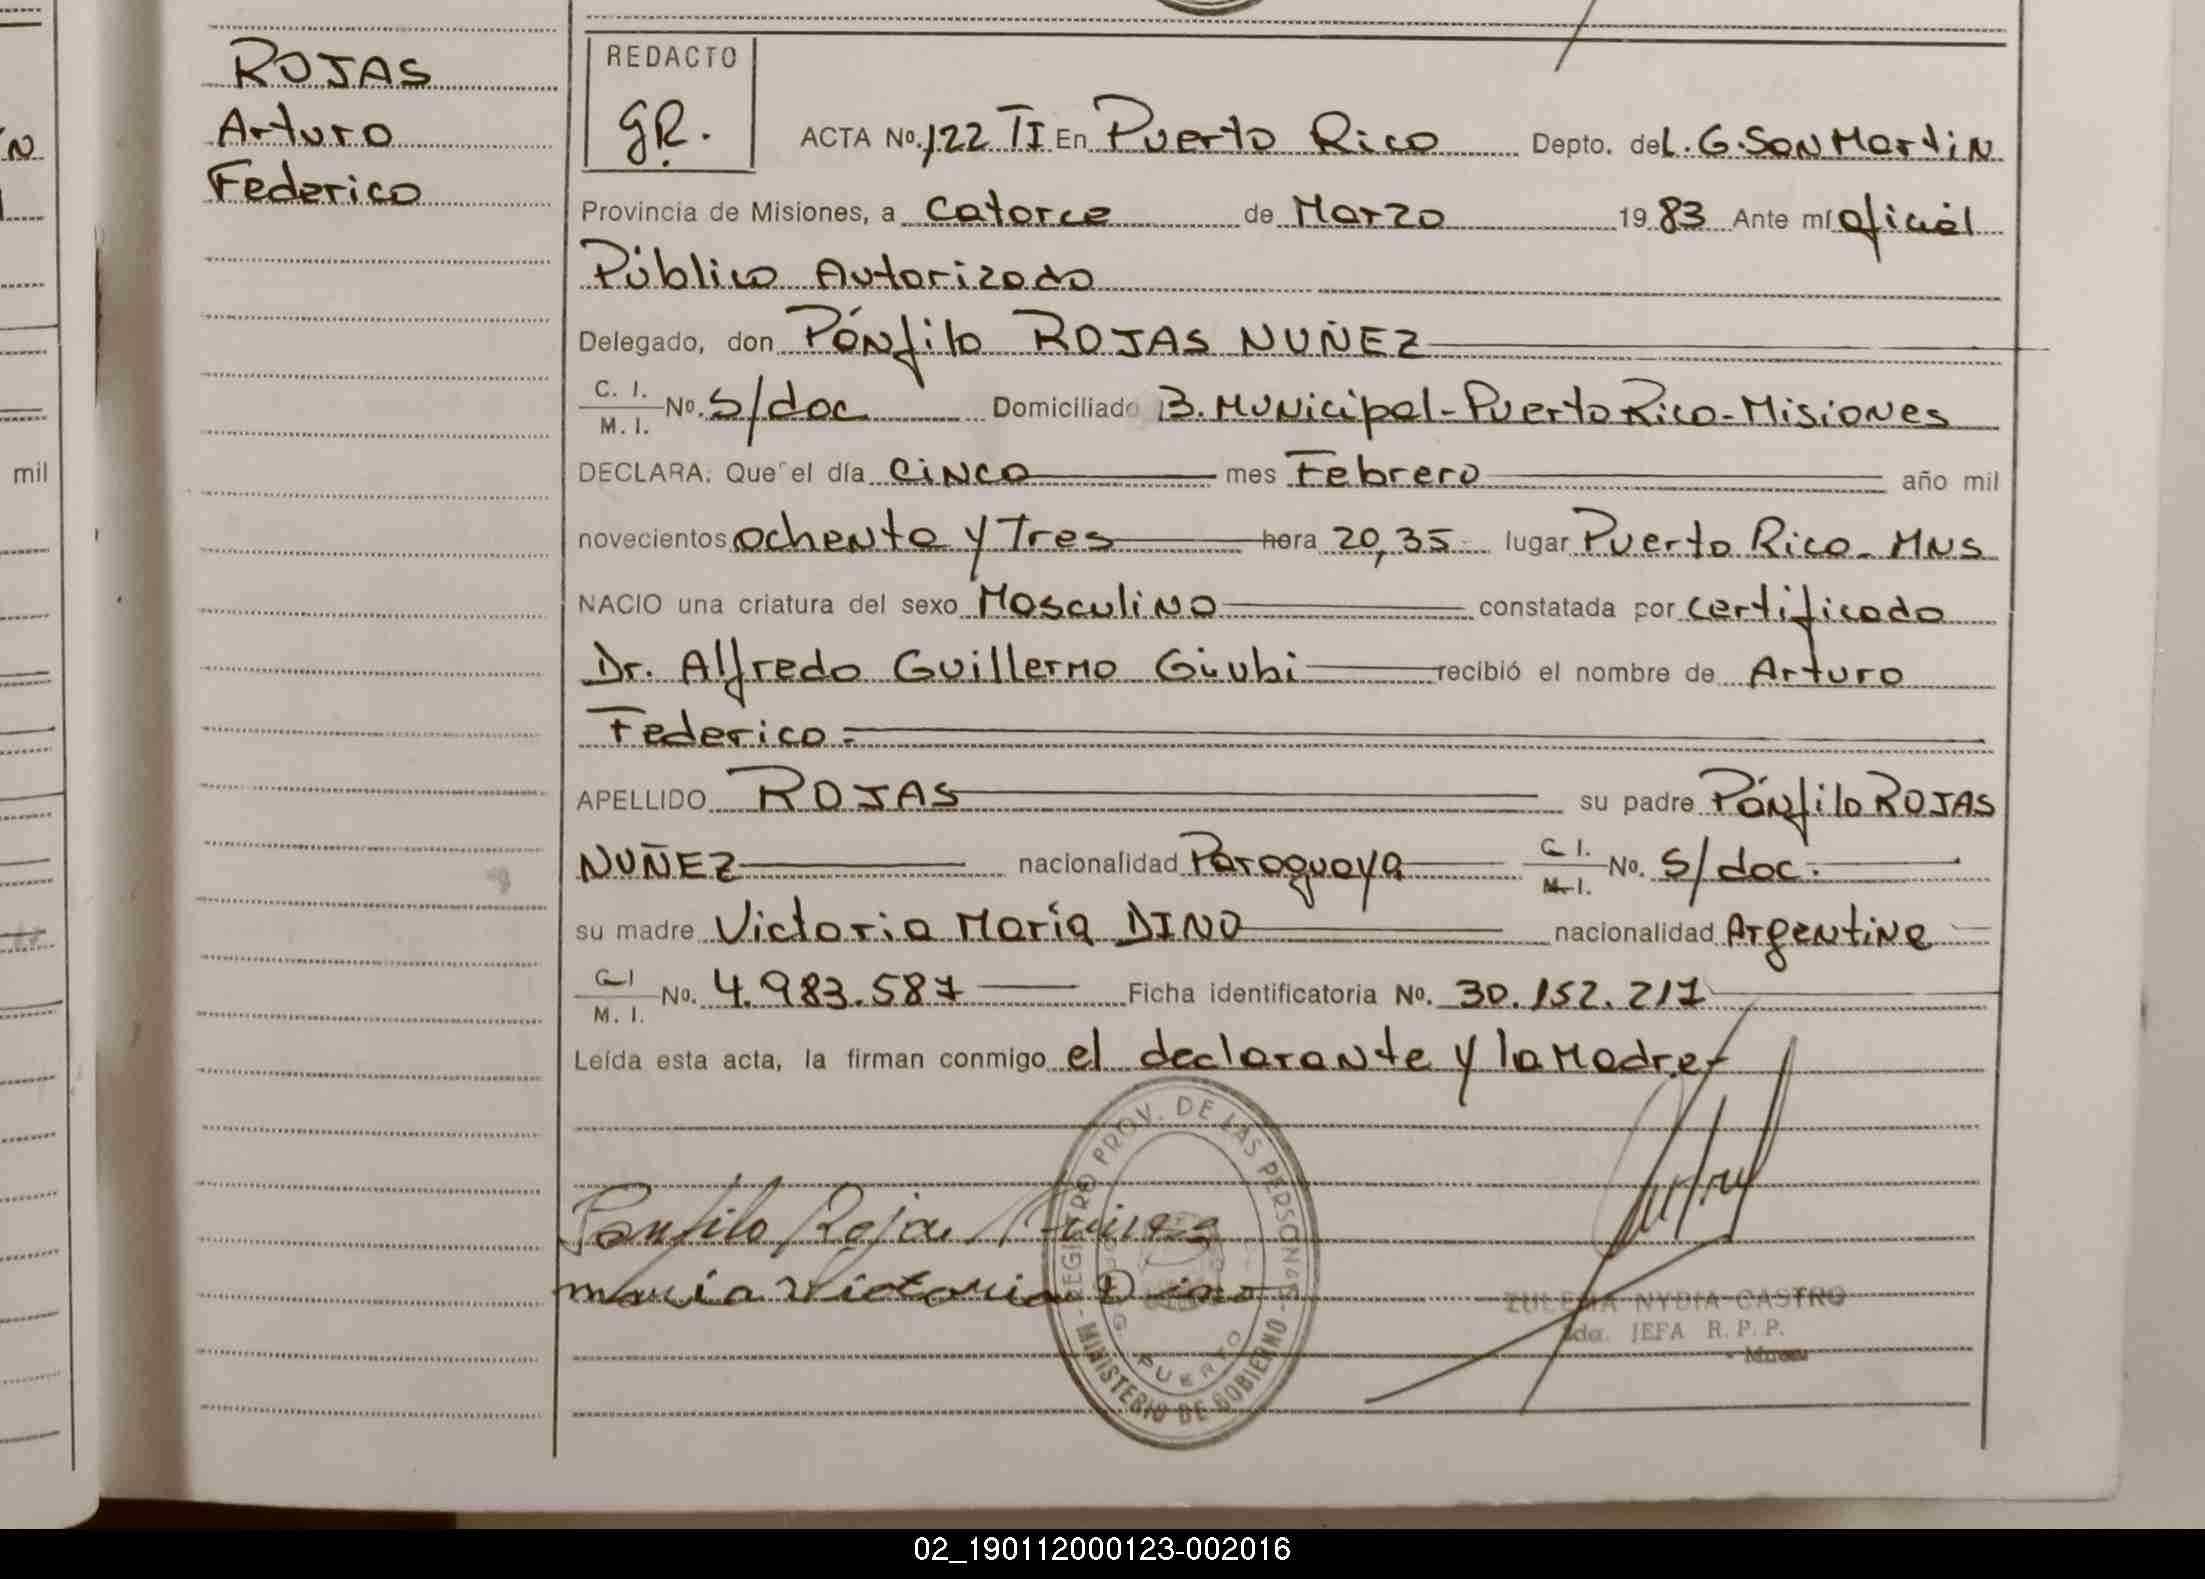 ROJAS
Arturo
Federico
N
mil
REDACTO
GR.
ACTA No. 122 TI En Puerto Rico Depto. de L. G. San Martin
Provincia de Misiones, a Catorce de Marzo 19 83 Ante mí oficial
Público Autorizado
Delegado, don Pánfilo ROJAS NUÑEZ
C. I. M. I. No. S/doc Domiciliado B. Municipal - Puerto Rico - Misiones
DECLARA: Que el día Cinco mes Febrero año mil
novecientos ochenta y Tres hora 20,35 lugar Puerto Rico - MNS
NACIO una criatura del sexo Masculino constatada por certificado
Dr. Alfredo Guillermo Giubi recibió el nombre de Arturo
Federico
APELLIDO ROJAS su padre Pánfilo ROJAS
NUÑEZ nacionalidad Paraguaya C. I. M. I. No. S/doc.
su madre Victoria María DINO nacionalidad Argentina
C. I M. I. No. 4.983.587 Ficha identificatoria No. 30.152.217
Leída esta acta, la firman conmigo el declarante y la Madre
Panfilo Rojas
maria Victoria Dino
REGISTRO PROV. DE LAS PERSONAS - MINISTERIO DE GOBIERNO -
PUERTO
ZULEMA NYDIA CASTRO
2da. JEFA R. P. P.
02_190112000123-002016